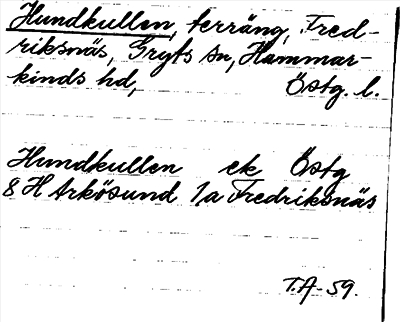 Hundkullen, terräng, Fred-
riksnäs, Gryts sn, Hammar-
kinds hd, Östg. l.
Hundkullen ek Östg
8 H Arkösund 1,a Fredriksnäs
T.A-59.